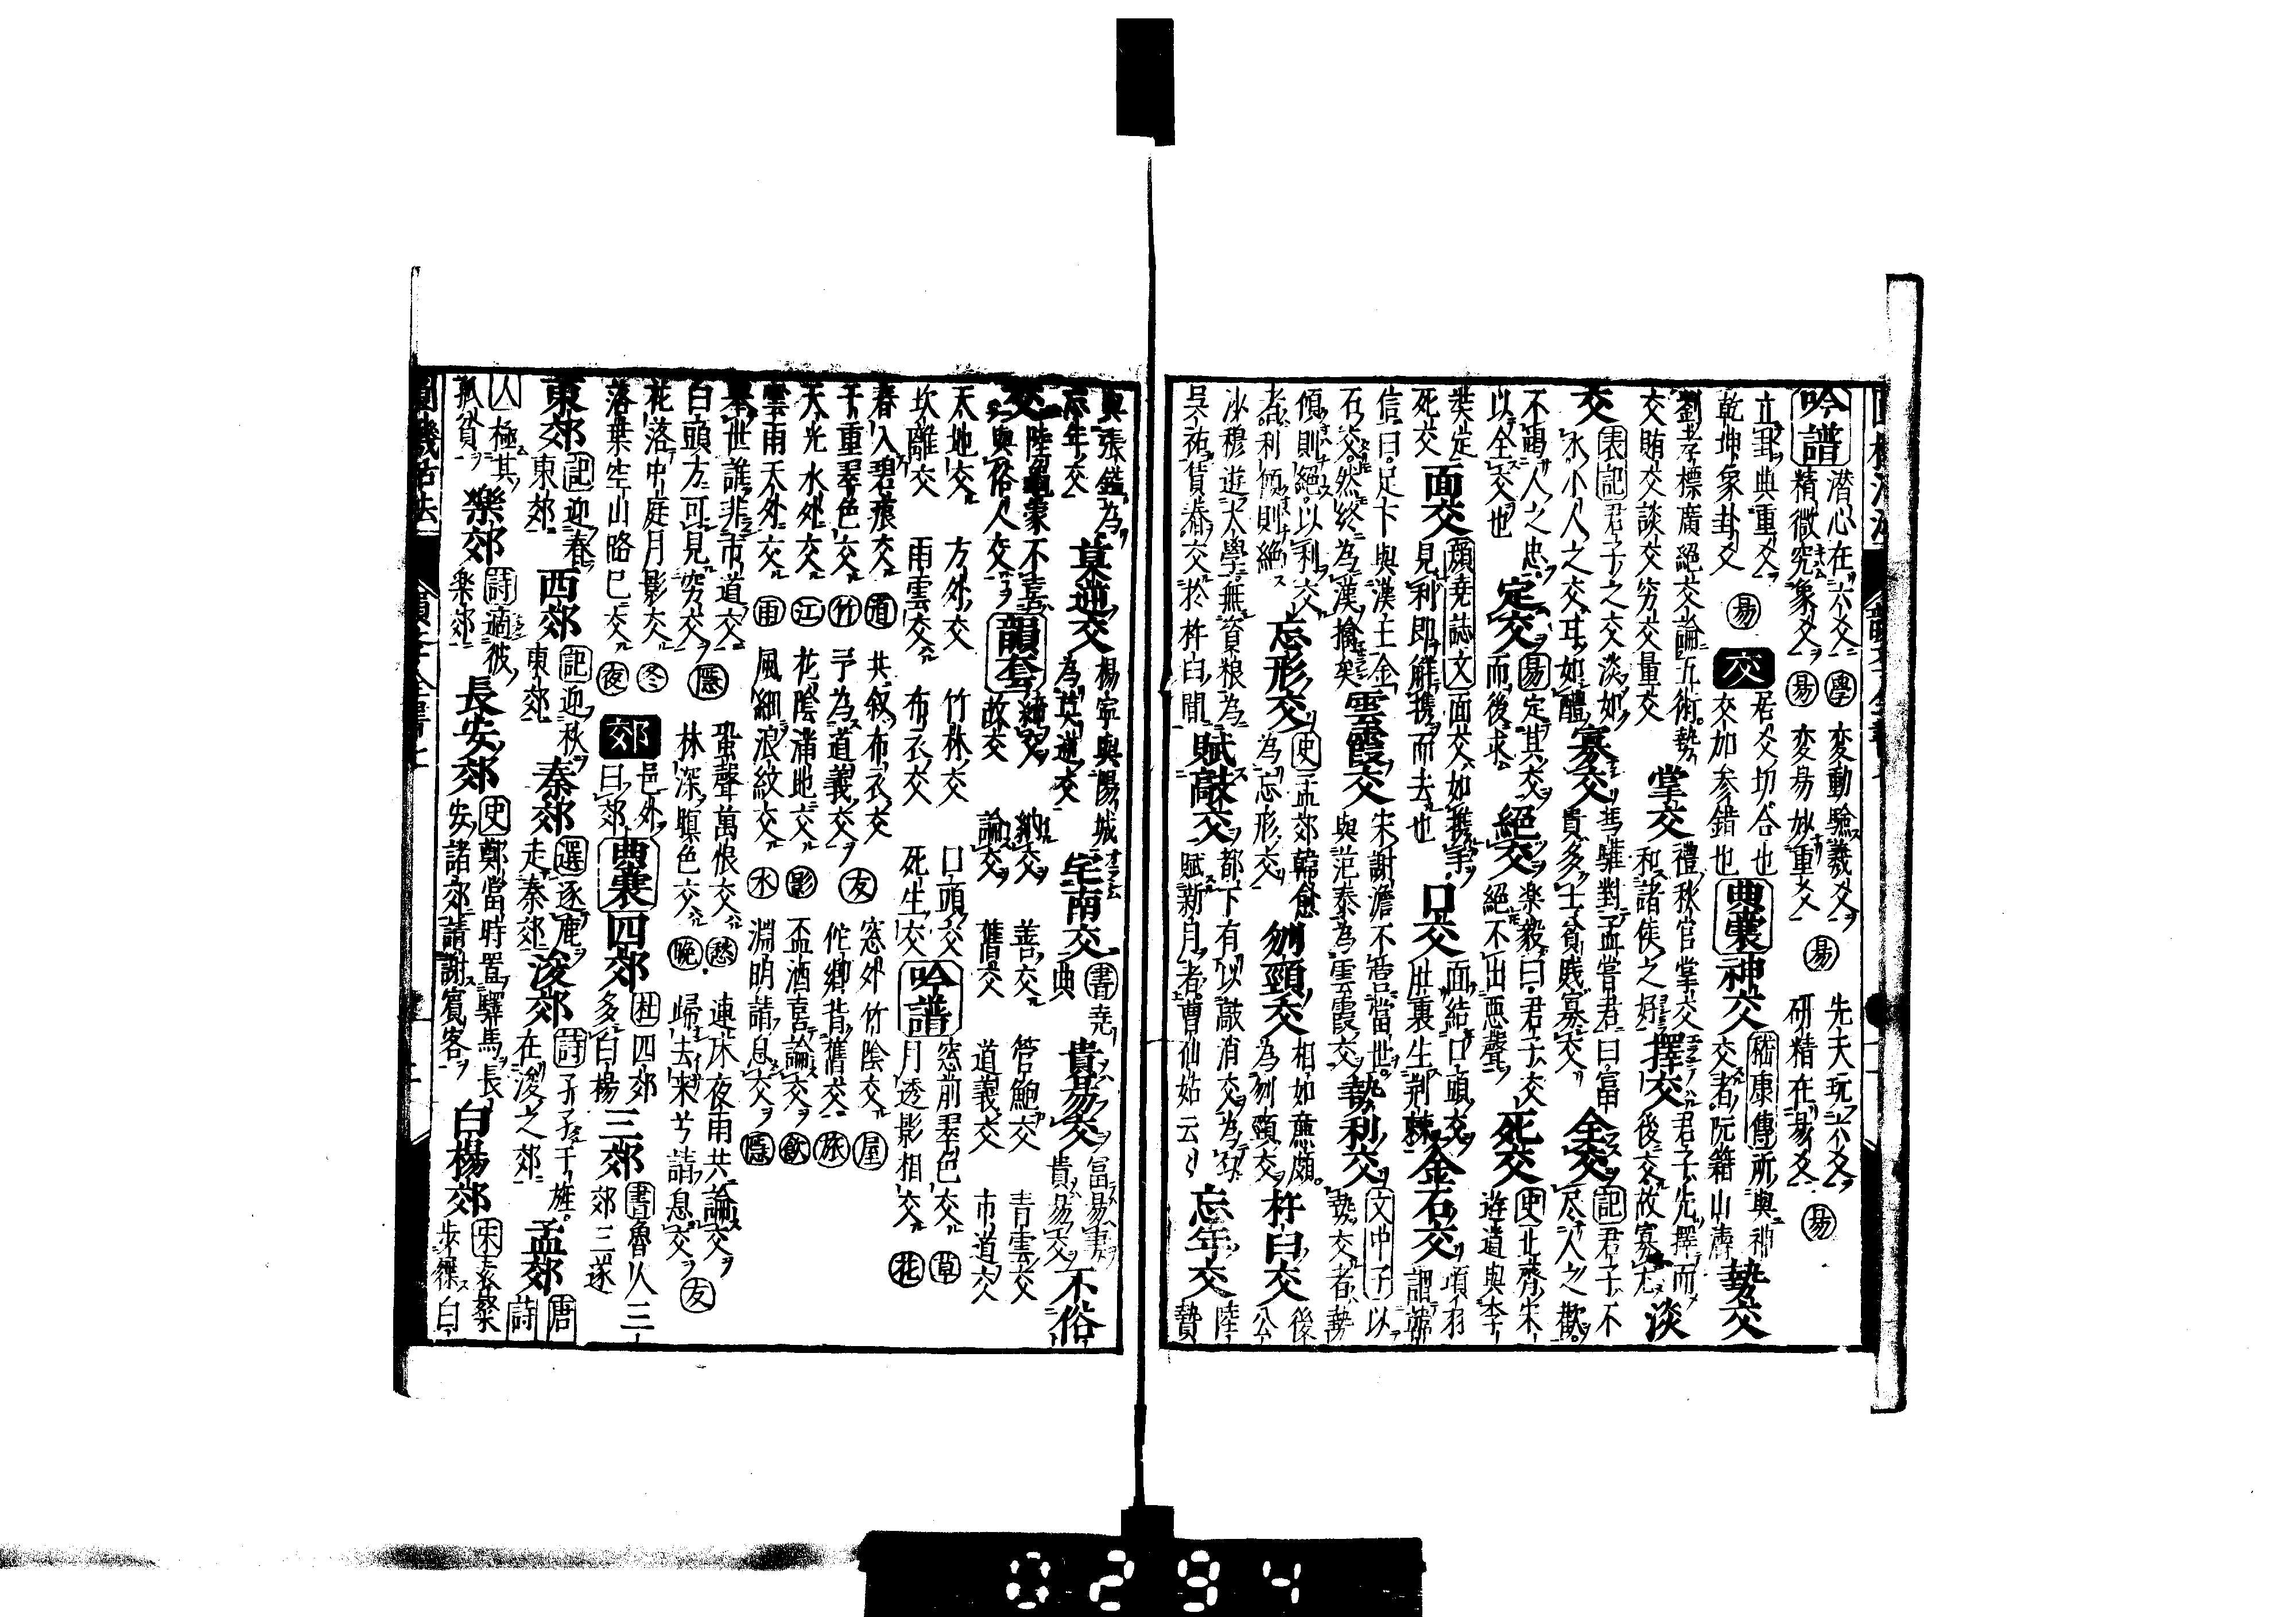 吟譜 潜心在六爻 學 変動驗羲爻 易 先天玩六爻 易
精微究象爻 易 変易妙重爻 易 研精在易爻
立卦典重爻
乾坤象卦爻 易
交 居爻切合也
交加參錯也
典裳 神交 嵇康傳所與神
交者阮籍山濤
勢交
劉孝標廣絕交論五術勢
交賄交談交窮交量交
掌交 禮秋官掌交
和諸侯之好
擇交 君子先擇而
後交故寡尤
淡
交 表記君子之交淡如
水小人之交甘如醴
寡交 馮驩對孟嘗君曰富
貴多士貧賤寡交
全交 記君子不
尽人之歡
不竭人之忠
以全交也
定交 易定其交
而後求
絕交 楽毅曰君子交
絕不出悪聲
死交 史北齊宋
遊道與李
奘定
死交
面交 顔堯誌文面交如携手
見利即解携而去也
口交 面結口頭交
肚裏生荆棘
金石交 項羽
謂韓
信曰足下與漢王金
石交然終為漢擒矣
雲霞交 宋謝澹不営當世
與范泰為雲霞交
勢利交 文中子以
勢交者勢
傾則絕以利交
者利傾則絕
忘形交 史孟郊韓愈
為忘形交
刎頸交 相如廉頗
為刎頸交
杵臼交 後
公
沙穆遊太學無資粮為
吳祐賃舂交於杵臼間
賦敲交 都下有以敲消交為
賦新月者曹仙姑云
忘年交 陸
贄
與張鎰為
忘年交
莫逆交 楊寧與陽城
為莫逆交
宅南交 書堯
典
貴易交 富易妻
貴易交
不俗
交 陸龜蒙不喜
與俗人交
韻套 締交 納交 善交 管鮑交 青雲交
故交 論交 舊交 道義交 市道交
天地交 方外交 竹林交 口頭交
坎離交 雨雲交 布衣交 死生交
吟譜 窓前翠色交 草
月透影相交 花
春入碧痕交 道 共叙布衣交 友 窓外竹陰交 屋
千重翠色交 竹 予為道義交 佗鄉背舊交 旅
天光水外交 江 花陰滿地交 影 盃酒喜論交 飲
雲雨天外交 雨 風細浪紋交 水 淵明請息交 隱
舉世誰非市道交 蛩聲萬恨交 愁 連床夜雨共論交 友
白頭方可見窮交 隱 林深暝色交 晚 歸去来兮請息交
花落中庭月影交 冬
落葉空山略已交 夜
郊 邑外
曰郊
典裳 四郊 杜四郊
多白楊
三郊 書魯人三
郊三遂
東郊 記迎春
東郊
西郊 記迎秋
東郊
秦郊 選逐鹿
走秦郊
浚郊 詩孑孑干旌
在浚之郊
孟郊 唐
詩
人極其
孤貧
楽郊 詩適彼
楽郊
長安郊 史鄭當時置驛馬長
安諸郊請謝賓客
白楊郊 宋袁粲
步屧白